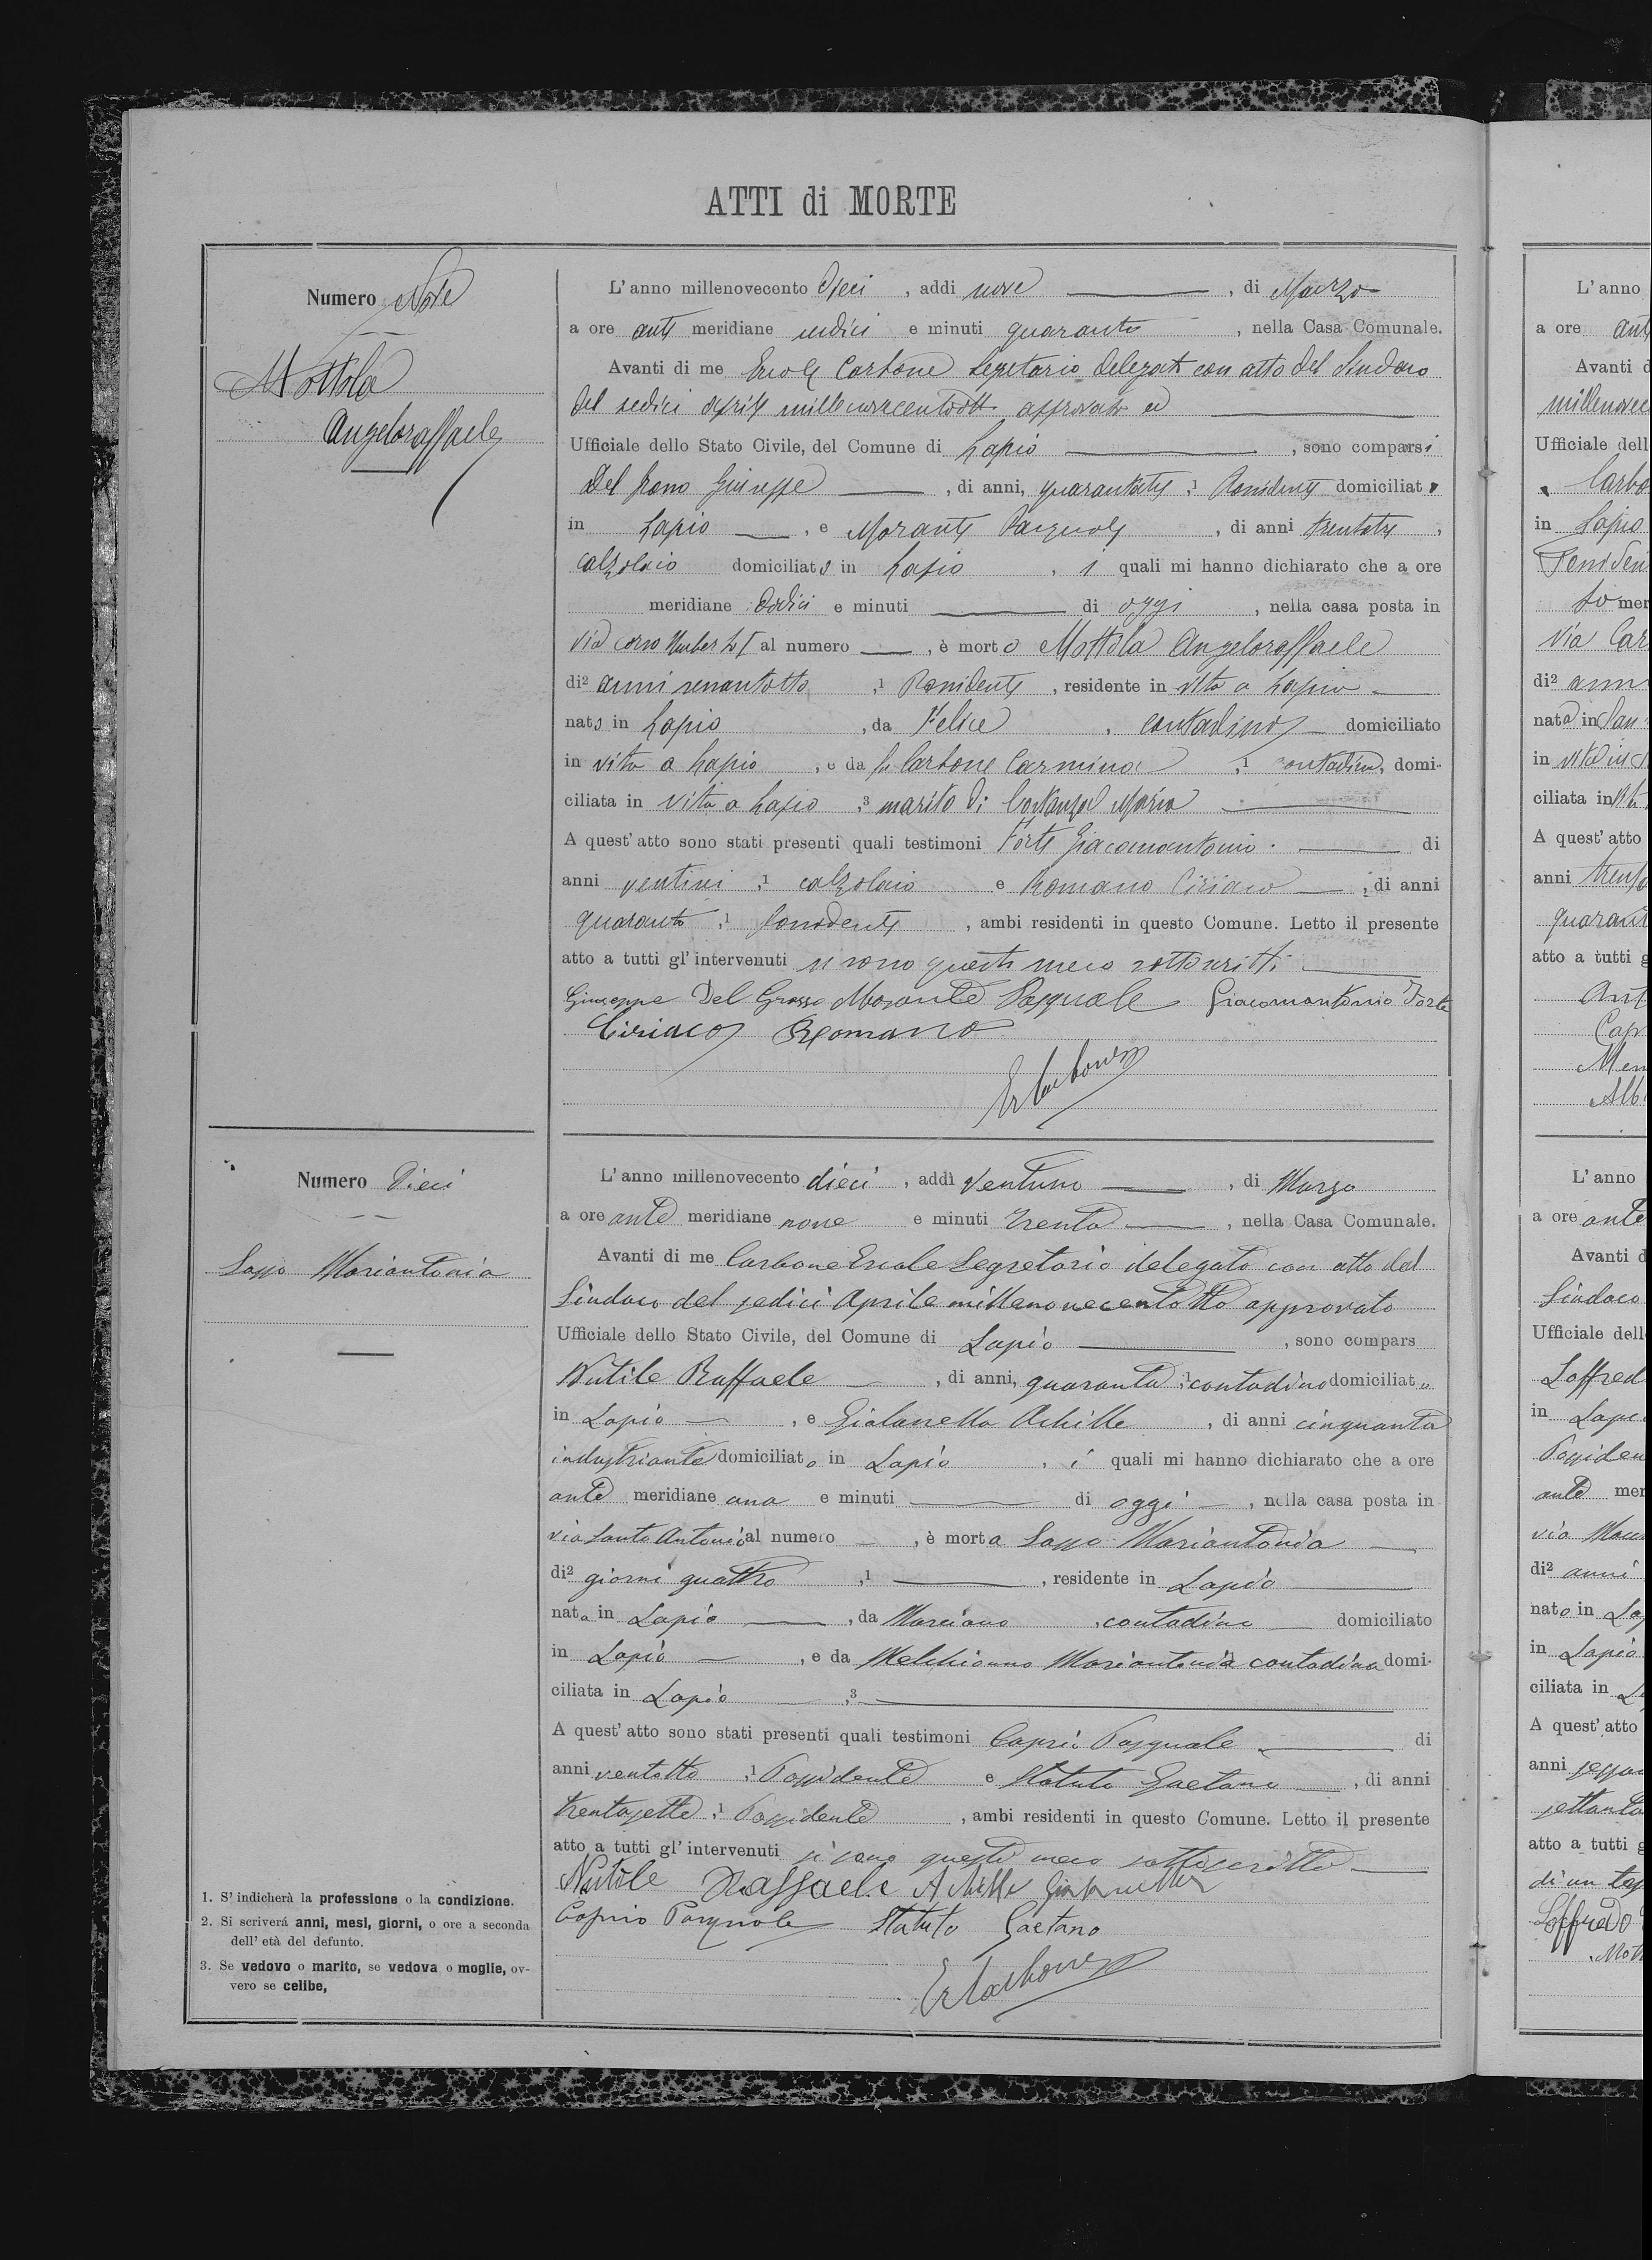 ATTI di MORTE
Numero Nove
Mottola
Angeloraffaele
L'anno millenovecento dieci, addi nove, di Marzo
a ore ante meridiane undici e minuti quaranta, nella Casa Comunale.
Avanti di me Ercole Carbone Segretario delegato con atto del Sindaco
del sedici aprile millenovecentootto approvato ed
Ufficiale dello Stato Civile, del Comune di Lapio, sono comparsi
Del Grosso Giuseppe, di anni, quarantatre,1 Possidente domiciliato
in Lapio, e Morante Pasquale, di anni trentatre,
calzolaio domiciliato in Lapio, i quali mi hanno dichiarato che a ore
meridiane dodici e minuti di oggi, nella casa posta in
via corso Umberto I al numero, è morto Mottola Angeloraffaele
di2 anni,1 Possidente, residente in vita a Lapio
nato in Lapio, da Felice, contadino domiciliato
in vita a Lapio, e da fu Carbone Carmina,1 contadina, domi-
ciliata in vita a Lapio,3 marito di Costanza Maria
A quest'atto sono stati presenti quali testimoni Forte Giacomantonio. di
anni,1 calzolaio e Romano Ciriaco, di anni
quaranta,1 Possidente, ambi residenti in questo Comune. Letto il presente
atto a tutti gl'intervenuti si sono questi meco sottoscritti
Giuseppe Del Grosso Morante Pasquale Giacomantonio Forte
Ciriaco Romano
ErCarbone
Numero Dieci
Sasso Mariantonia
L'anno millenovecento dieci, addì ventuno, di Marzo
a ore ante meridiane nove e minuti trenta, nella Casa Comunale.
Avanti di me Carbone Ercole Segretario delegato con atto del
Sindaco del sedici Aprile millenovecentotto approvato
Ufficiale dello Stato Civile, del Comune di Lapio, sono compars
Nutile Raffaele, di anni, quaranta,1 contadino domiciliato
in Lapio, e Gialanella Achille, di anni cinquanta
industriante domiciliato in Lapio, i quali mi hanno dichiarato che a ore
ante meridiane una e minuti di oggi, nella casa posta in
via Santo Antonio al numero, è morta Sasso Mariantonia
di2 giorni quattro,1, residente in Lapio
nata in Lapio, da Marciano, contadino domiciliato
in Lapio, e da Melchionno Mariantonia contadina domi-
ciliata in Lapio,3
A quest'atto sono stati presenti quali testimoni Caprio Pasquale di
anni ventotto,1 Possidente e Statuto Gaetano, di anni
trentasette,1 Possidente, ambi residenti in questo Comune. Letto il presente
atto a tutti gl'intervenuti si sono questi meco sottoscritti
Nutile Raffaele Achille Gialanella
Caprio Pasquale Statuto Gaetano
ErCarbone
1. S'indicherà la professione o la condizione.
2. Si scriverá anni, mesi, giorni, o ore a seconda
dell'età del defunto.
3. Se vedovo o marito, se vedova o moglie, ov-
vero se celibe,
L'anno
a ore ant
Avanti d
millenovec
Ufficiale dell
Carbo
in Lapio
mer
via Car
di2 ann
nato in
in vita
ciliata in
A quest'atto
anni
quarant
atto a tutti g
Ant
Cap
Men
Alb
L'anno
a ore ante
Avanti d
Sindaco
Ufficiale dell
Loffred
in Lapi
Possiden
ante mer
via
di2 anni
nato in La
in Lapio
ciliata in L
A quest'atto
anni
settanta
atto a tutti g
di un
Loffredo
Mott